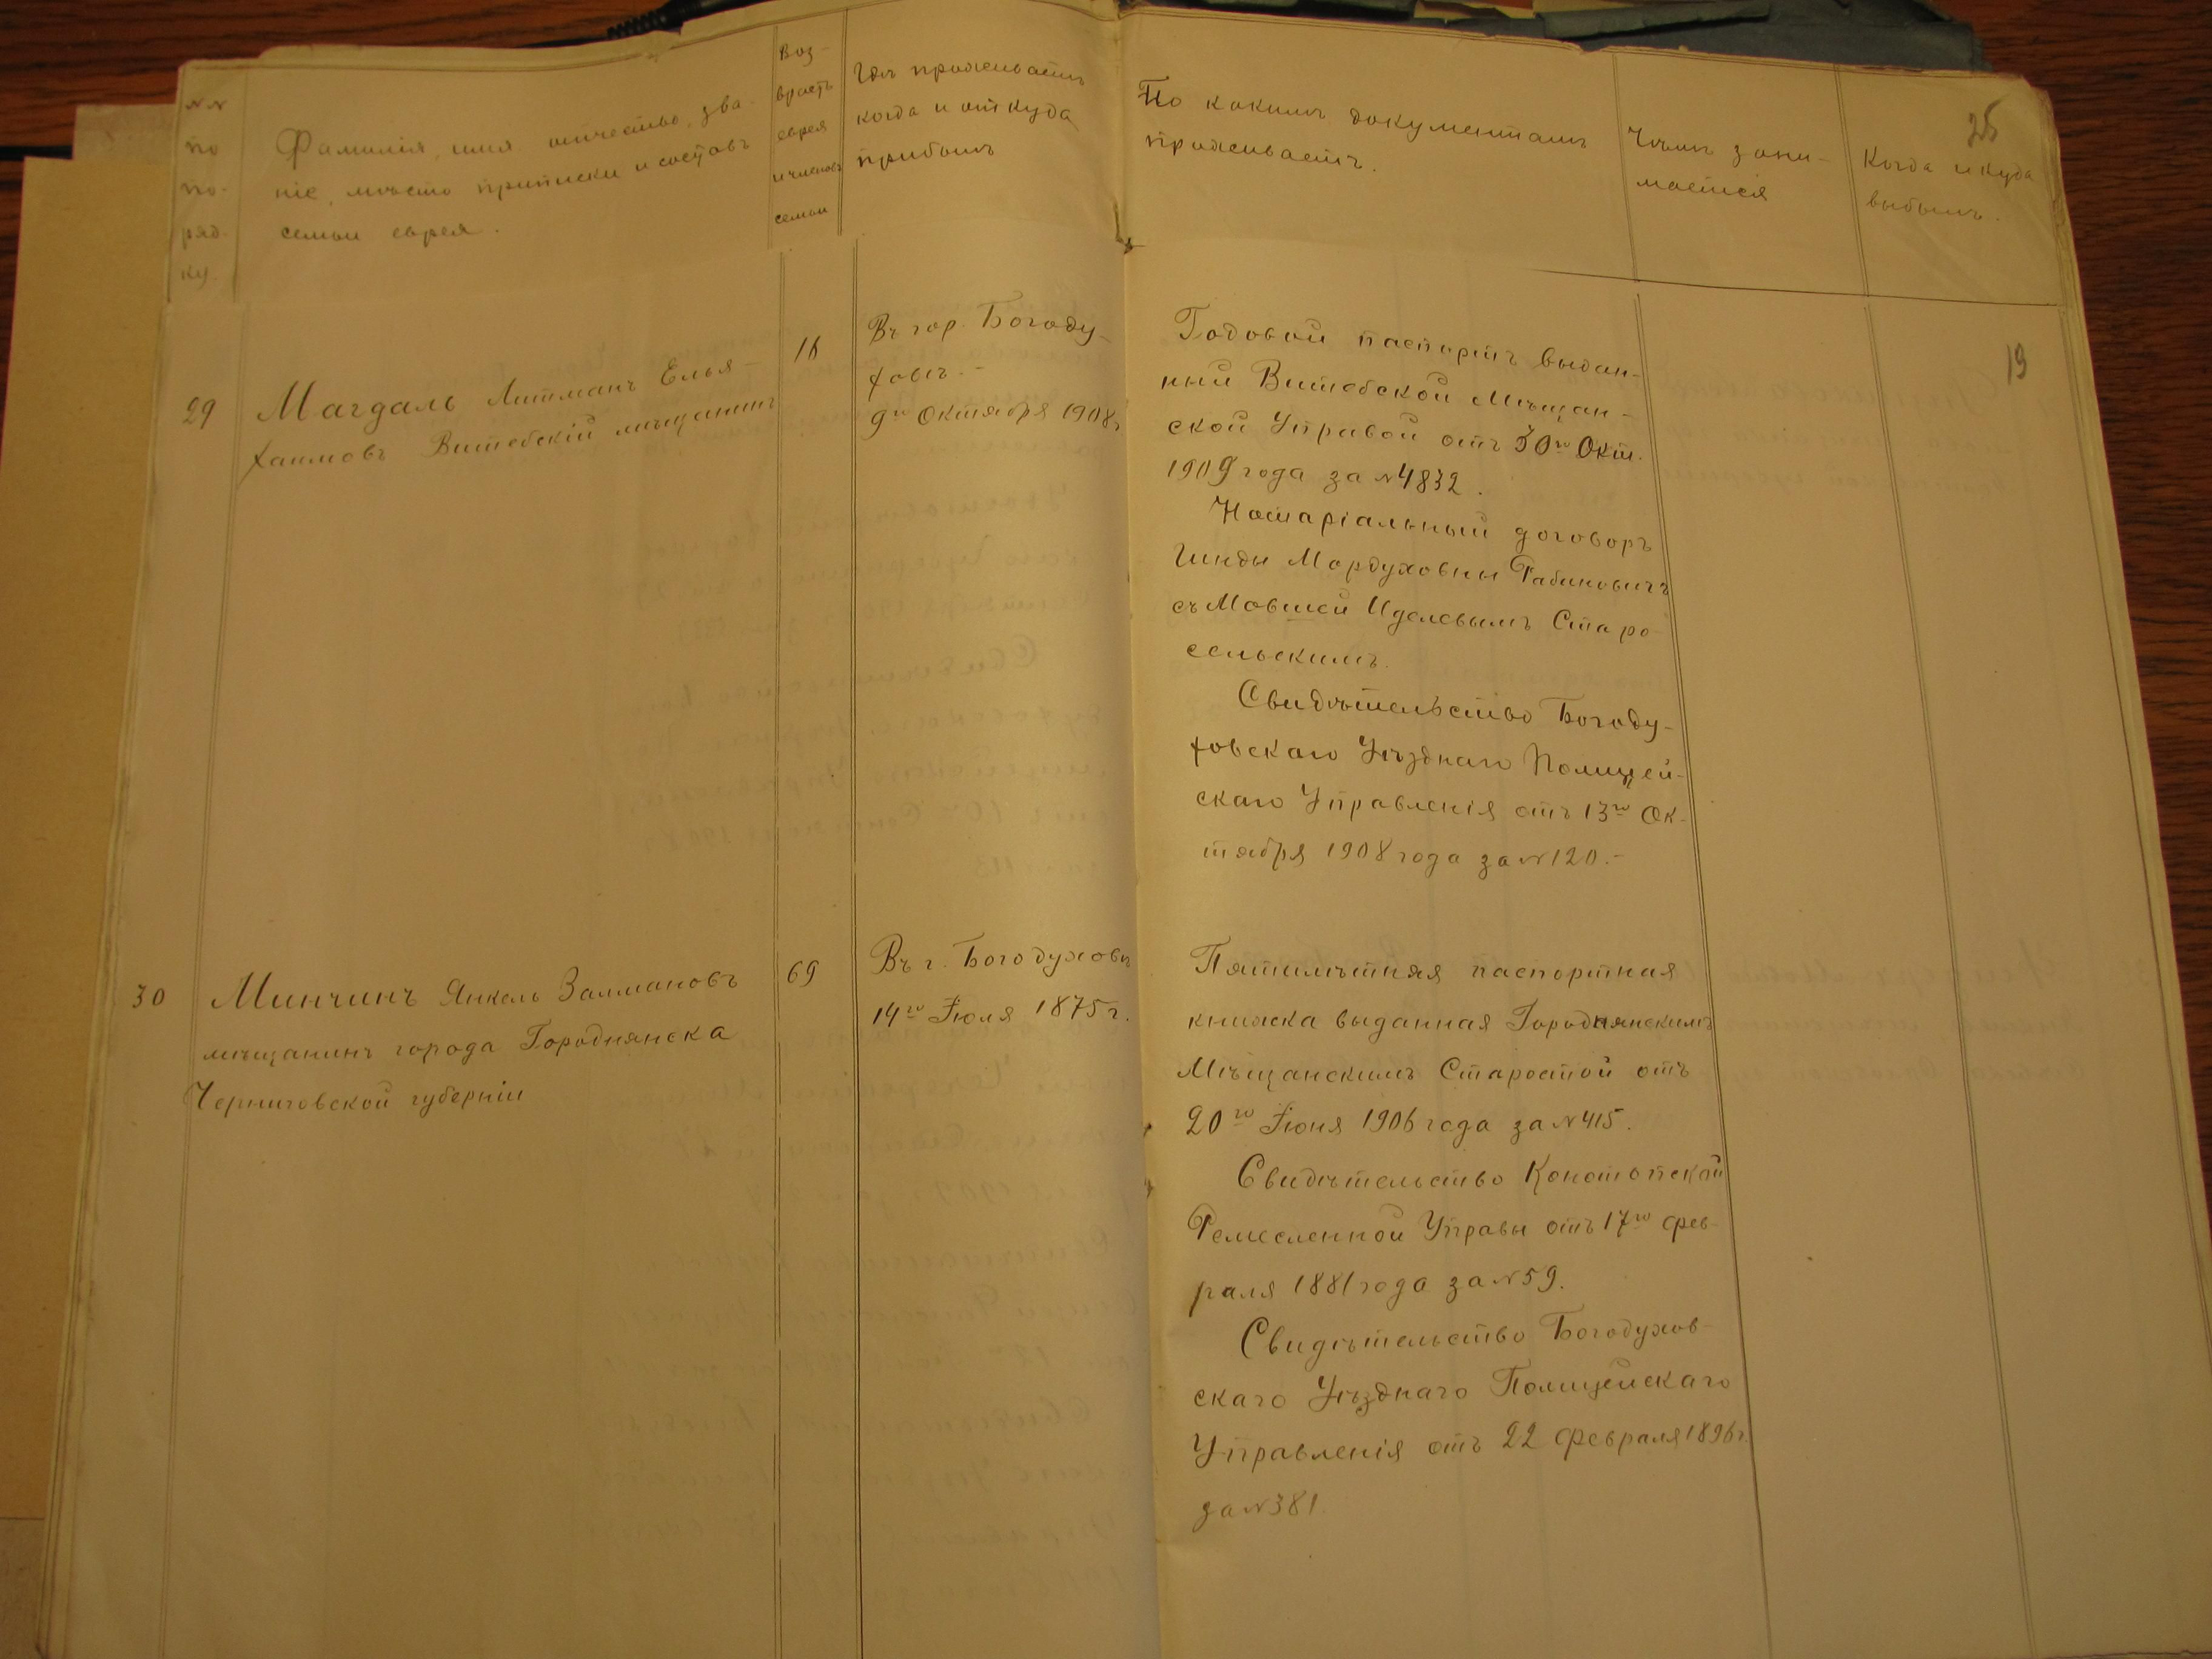 №№
по
по-
ряд-
ку.
Фамилія, имя отчество, зва-
ніе, мѣсто приписки и составъ
семьи еврея.
Воз-
врастъ
еврея
и членовъ
семьи
Гдѣ проживаетъ
когда и откуда
прибылъ
По какимъ документамъ
проживаетъ.
Чѣмъ зани-
мается
Когда и куда
выбылъ.
25
19
29
Магдаль Литманъ Елья-
Хаимовъ Витебскій мѣщанинъ
16
Въ гор. Богоду-
ховѣ.-
9го Октября 1908г.
Годовой паспортъ выдан-
ный Витебской Мѣщан-
ской Управой отъ 30го Окт.
1909 года за №4832.
Нотаріальный договоръ
Гинды Мордуховны Рабиновичъ
съ Мовшей Иделевымъ Старо-
сельскимъ.
Свидѣтельство Богоду-
ховскаго Уѣзднаго Полицей-
скаго Управленія отъ 13го Ок-
тября 1908 года за №120.-
30
Минчинъ Янкель Залмановъ
мѣщанинъ города Городнянска
Черниговской губерніи
69
Въ г. Богодуховѣ
14го Іюля 1875г.
Пятилѣтняя паспортная
книжка выданная Городнянскимъ
Мѣщанскимъ Старостой отъ
20го Іюня 1906 года за №415.
Свидѣтельство Конотопской
Ремесленной Управы отъ 17го фев-
раля 1881 года за №59.
Свидѣтельство Богодухов-
скаго Уѣзднаго Полицейскаго
Управленія отъ 22 февраля 1896г.
за №381.